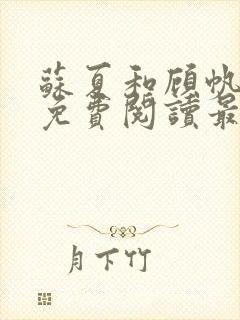 蘇夏和顾帆
免費閱讀最
月下竹